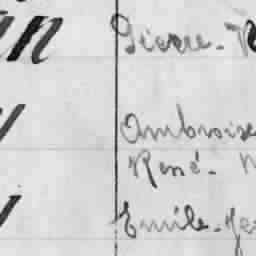 an Pierre-
y Ambroise
René-
y Emile-